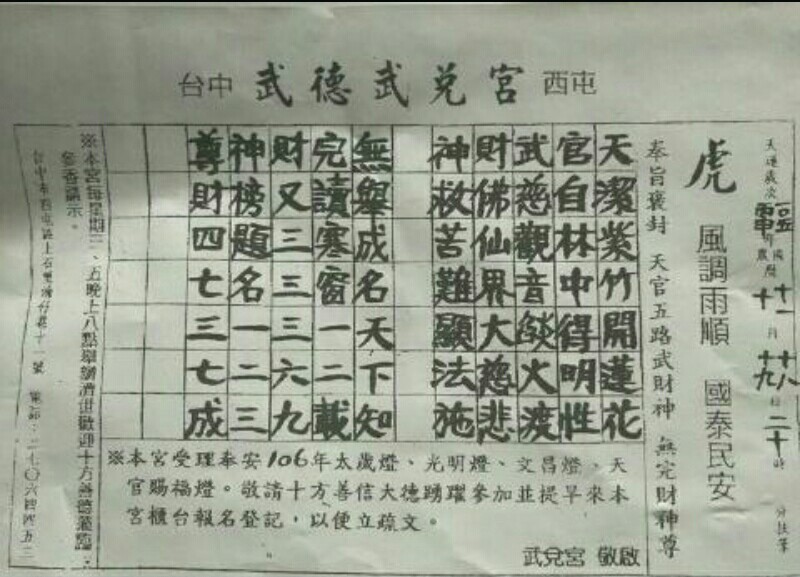 台中 武德武兌宮 西屯
天運歲次
一〇五
丙申年
國曆 十一月 十八日
農曆 十月 十九日
二十時 分扶筆
虎 風調雨順 國泰民安
奉旨褒封 天官五路武財神 無完財神尊
天潔紫竹開蓮花
官自林中得明性
武慈觀音燄火渡
財佛仙界大慈悲
神救苦難顯法施
無舉成名天下知
完讀寒窗一二載
財又三三三六九
神榜題名一二三
尊財四七三七成
※本宮受理奉安106年太歲燈、光明燈、文昌燈、天
官賜福燈。敬請十方善信大德踴躍參加並提早來本
宮櫃台報名登記，以便立疏文。
武兌宮 敬啟
※本宮每星期二、五晚上八點舉辦濟世歡迎十方善德蒞臨
參香請示。
台中市西屯區上石里 十一號 電話：二七〇六四四五二